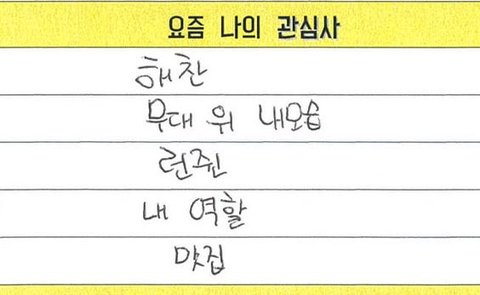 요즘 나의 관심사
해찬
무대 위 내모습
런쥔
내 역할
맛집